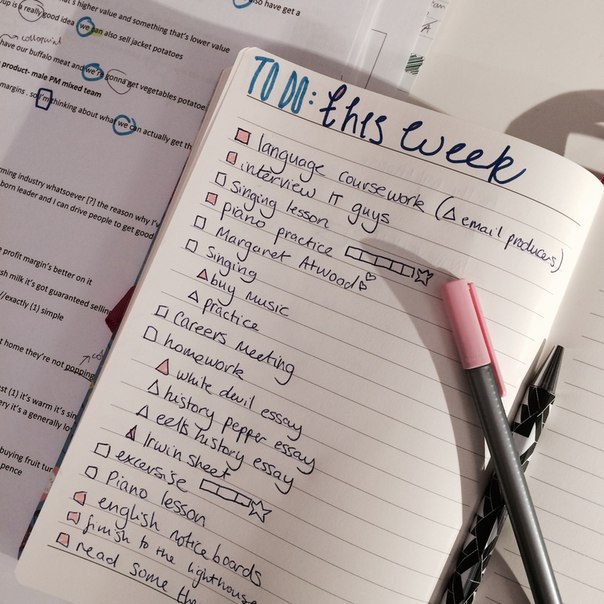 s higher value and something that's lower value
up is a really good idea we can also sell jacket potatoes
colloquial
have our buffalo meat and we're gonna get vegetables potatoe
product- male PM mixed team
margins . so I'm thinking about what we can actually get th
ming industry whatsoever [?] the reason why I'v
born leader and I can drive people to get good
e profit margin's better on it
sh milk it's got guaranteed sellin
//exactly (1) simple
t home they're not popping
st (1) it's warm it's sin
ery it's a generally lo
buying fruit tur
pence
TO DO: this week
language coursework (△ email producers)
interview IT guys
singing lesson
piano practice
Margaret Atwood
singing
buy music
practice
careers meeting
homework
white devil essay
history pepper essay
eells history essay
Irwin sheet
excersise
piano lesson
english noticeboards
finish to the lighthouse
read some